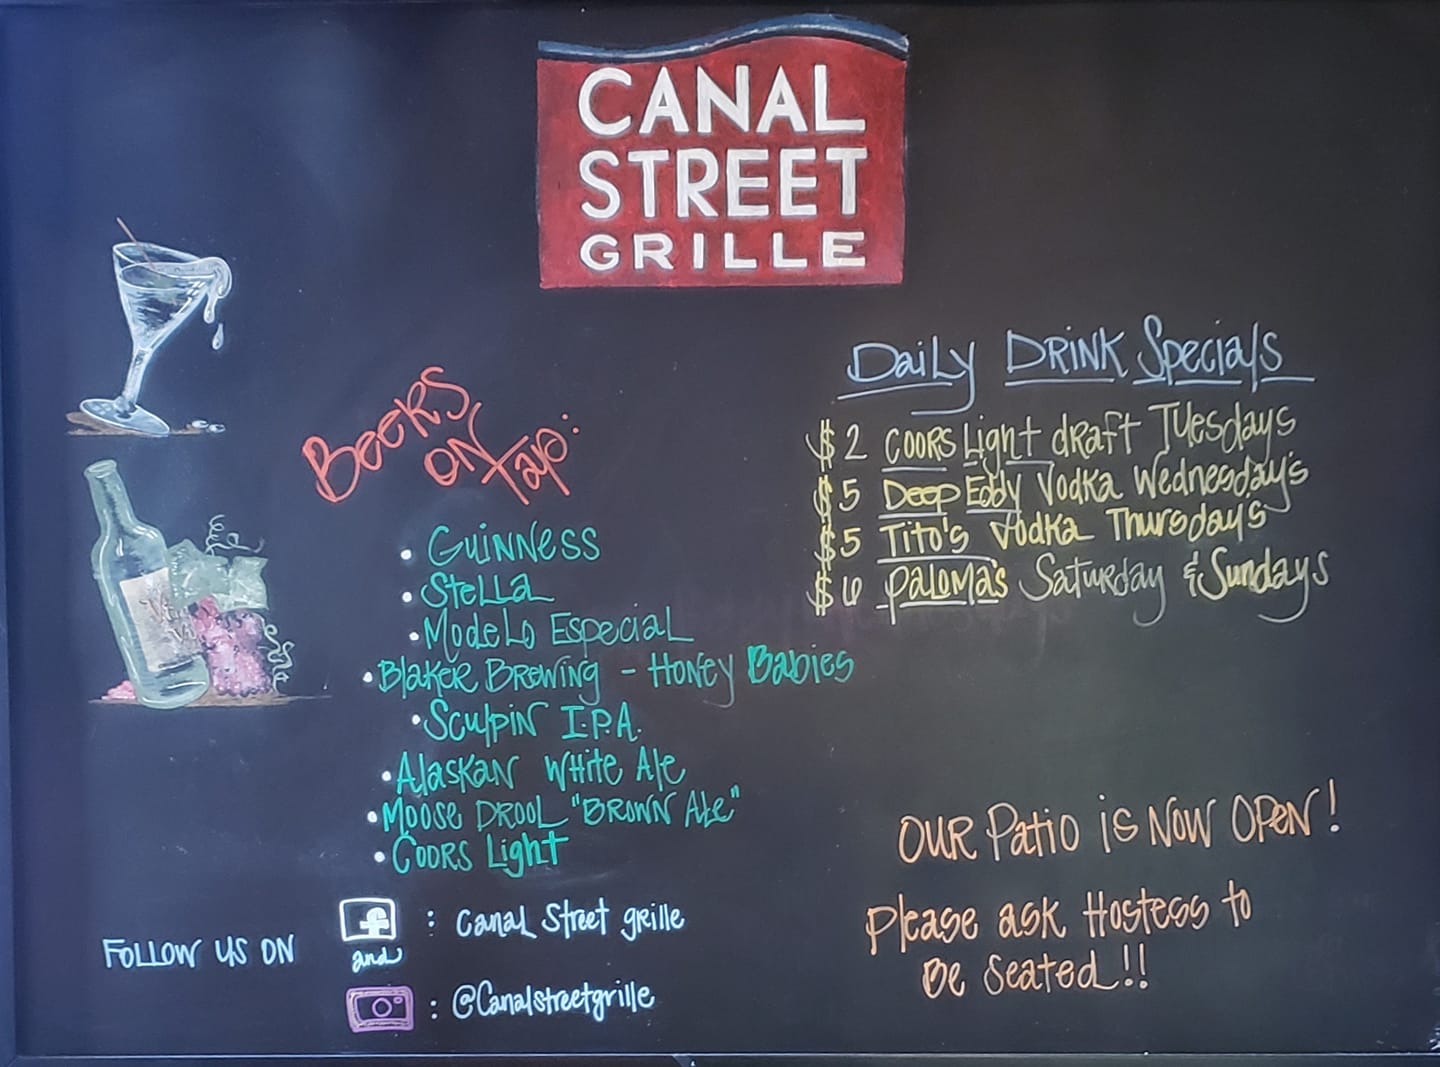 CANAL
STREET
GRILLE
Beers
on
tap:
• Guinness
• Stella
• Modelo Especial
• Blaker Brewing - Honey Babies
• Sculpin I.P.A.
• Alaskan White Ale
• Moose Drool "Brown Ale"
• Coors Light
Follow us on
f : Canal Street grille
and
: @Canalstreetgrille
Daily Drink Specials
$2 Coors Light draft Tuesdays
$5 Deep Eddy Vodka Wednesday's
$5 Tito's Vodka Thursday's
$6 Paloma's Saturday & Sundays
Our Patio is Now Open!
Please ask Hostess to
Be Seated!!